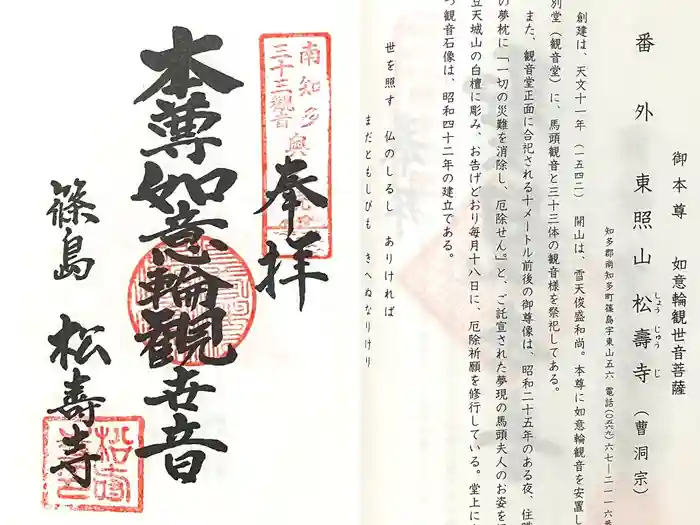 番外 東照山松壽寺(曹洞宗)
しょうじゅうじ
御本尊 如意輪観世音菩薩
知多郡南知多町篠島字東山五六 電話(〇五六九)六七―二一一六番
創建は、天文十一年(一五四二) 開山は、雪天俊盛和尚。本尊に如意輪観音を安置し
別堂(観音堂)に、馬頭観音と三十三体の観音様を祭祀してある。
また、観音堂正面に合祀される十メートル前後の御尊像は、昭和二十五年のある夜、住職
の夢枕に「一切の災難を消除し、厄除せん。」と、ご託宣された夢現の馬頭夫人のお姿を
豆天城山の白檀に彫み、お告げどおり毎月十八日に、厄除祈願を修行している。堂上に
つ観音石像は、昭和四十二年の建立である。
世を照す 仏のしるし ありければ
まだともしびも きへぬなりけり
南知多
三十三観音
奉拝
本尊如意輪観世音
篠島 松壽寺